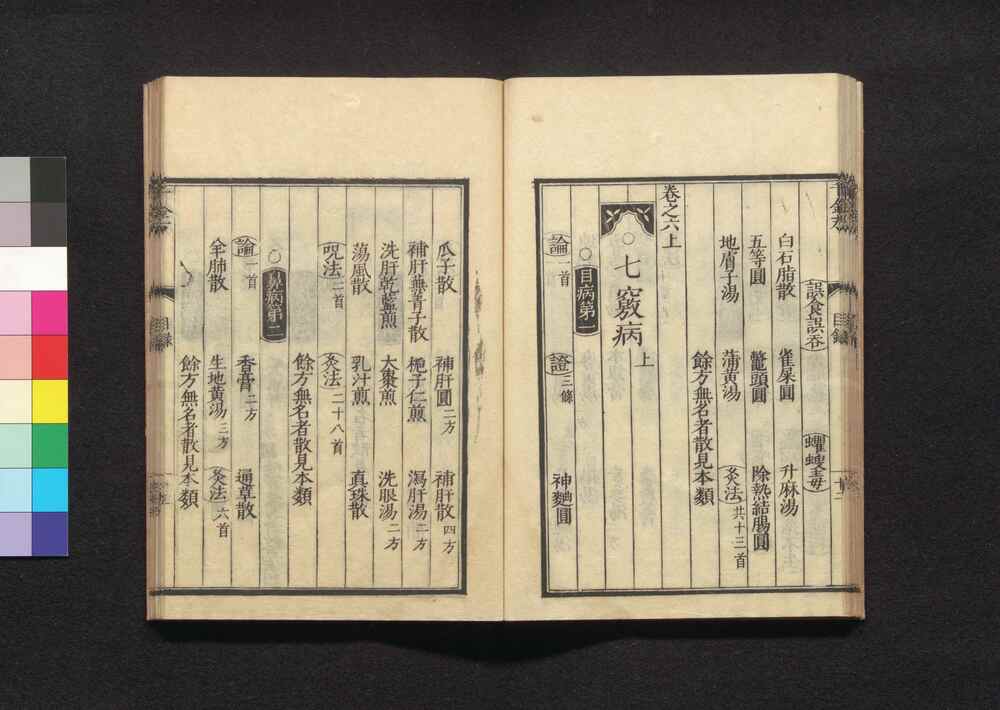 誤食誤呑 蠼螋毒
白石脂散 雀屎圓 升麻湯
五等圓 鼈頭圓 除熱結腸圓
地膚子湯 蒲黃湯 灸法共十三首
餘方無名者散見本類
卷之六上
七竅病上
目病第一
論一首 證三條 神麯圓
瓜子散 補肝圓二方 補肝散四方
補肝蕪菁子散 梔子仁煎 瀉肝湯二方
洗肝乾藍煎 大棗煎 洗眼湯二方
蕩風散 乳汁煎 真珠散
呪法二首 灸法二十八首
餘方無名者散見本類
鼻病第二
論一首 香膏二方 通草散
羊肺散 生地黃湯三方 灸法六首
餘方無名者散見本類
千金方 目錄